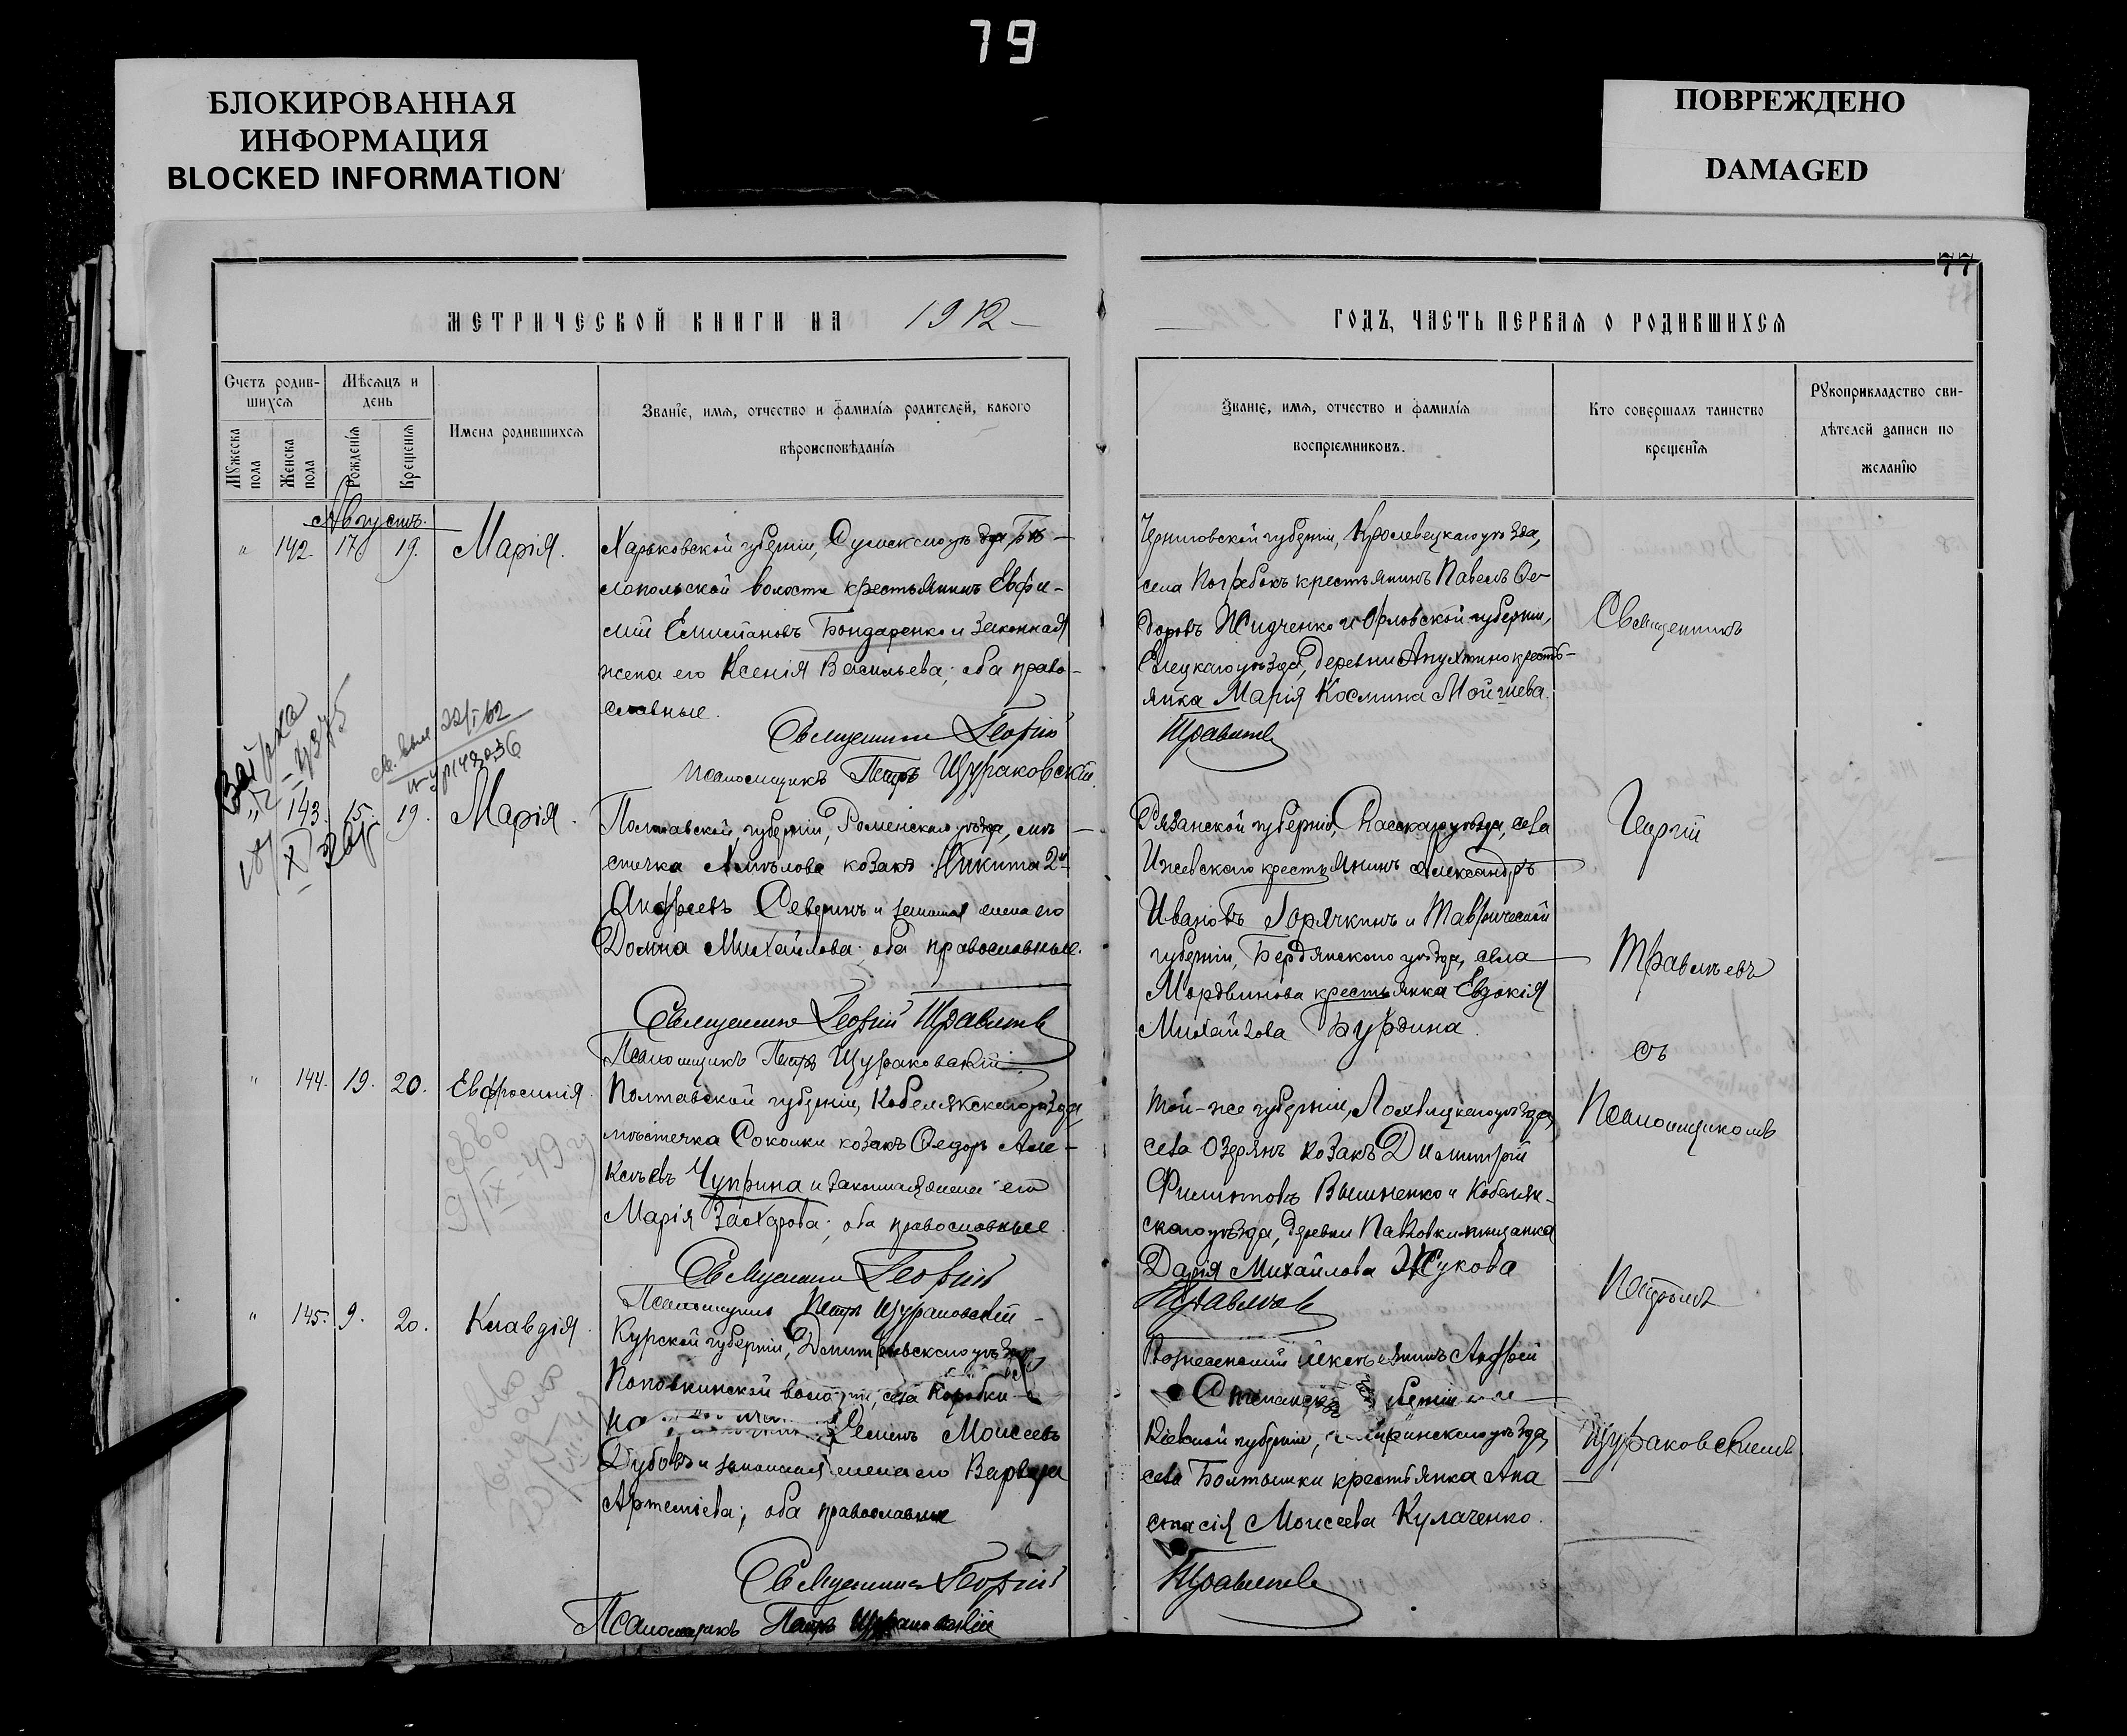 79
БЛОКИРОВАННАЯ
ИНФОРМАЦИЯ
BLOCKED INFORMATION
ПОВРЕЖДЕНО
DAMAGED
77
МЕТРИЧЕСКОЙ КНИГИ НА 1912
ГОДЪ, ЧАСТЬ ПЕРВАЯ О РОДИВШИХСЯ
Счетъ родив-
шихся
Мужеска
пола
Женска
пола
Мѣсяцъ и
день
Рожденія
Крещенія
Имена родившихся
Званіе, имя, отчество и фамилія родителей, какого
вѣроисповѣданія
Званіе, имя, отчество и фамилія
воспріемниковъ.
Кто совершалъ таинство
крещенія
Рукоприкладство сви-
дѣтелей записи по
желанію
Августъ.
" 142. 17 19. Марія.
Харьковской губерніи, Сумскаго уѣзда Бѣ-
лопольской волости крестьянинъ Евфи-
мій Бондаренко и законная
жена его Ксенія Васильева; оба право-
славные.
Священникъ Георгій
Псаломщикъ Петръ Щураковскій
Черниговской губерніи, Кролевецкаго уѣзда,
села Погребокъ крестьянинъ Павелъ Ѳе-
доровъ Жидченко и Орловской губерніи,
Елецкаго уѣзда, деревни Апухтино кресть-
янка Марія Космина Мойшева.
Травлѣевъ
" 143. 15. 19. Марія.
Полтавской губерніи, Роменскаго уѣзда, мѣ-
стечка Хмѣлова козакъ Никита 2й
Андреевъ Северинъ и законная жена его
Домна Михайлова; оба православные.
Священникъ Георгій Травлѣевъ
Псаломщикъ Петръ Щураковскій
Рязанской губерніи, Спасскаго уѣзда, села
Ижевскаго крестьянинъ Александръ
Ивановъ Горячкинъ и Таврической
губерніи, Бердянскаго уѣзда, села
Мордвинова крестьянка Евдокія
Михайлова Бурдина.
" 144. 19. 20. Евфросинія.
Полтавской губерніи, Кобелякскаго уѣзда
мѣстечка Соколки козакъ Ѳедоръ Але-
ксѣевъ Чуприна и законная жена его
Марія Захарова; оба православные.
Священникъ Георгій
Псаломщикъ Петръ Щураковскій
Той-же губерніи, Лохвицкаго уѣзда,
села Озерянъ козакъ Димитрій
Филиповъ Вышненко и Кобеляк-
скаго уѣзда, деревни Павловки мѣщанка
Дарія Михайлова Жукова
Травлѣевъ
" 145. 9. 20. Клавдія.
Курской губерніи, Дмитріевскаго уѣзда
Поповкинской волости, села Коробки-
но Семенъ Моисеевъ
Дубовъ и законная жена его Варвара
Артеміева; оба православные
Священникъ Георгій
Псаломщикъ Петръ Щураковскій
Андрей
Кіевской губерніи, уѣзда,
села Болтышки крестьянка Ана
стасія Моисеева Кулаченко.
Травлѣевъ
Священникъ
Георгій
Травлѣевъ
съ
Псаломщикомъ
Петромъ
Щураковскимъ